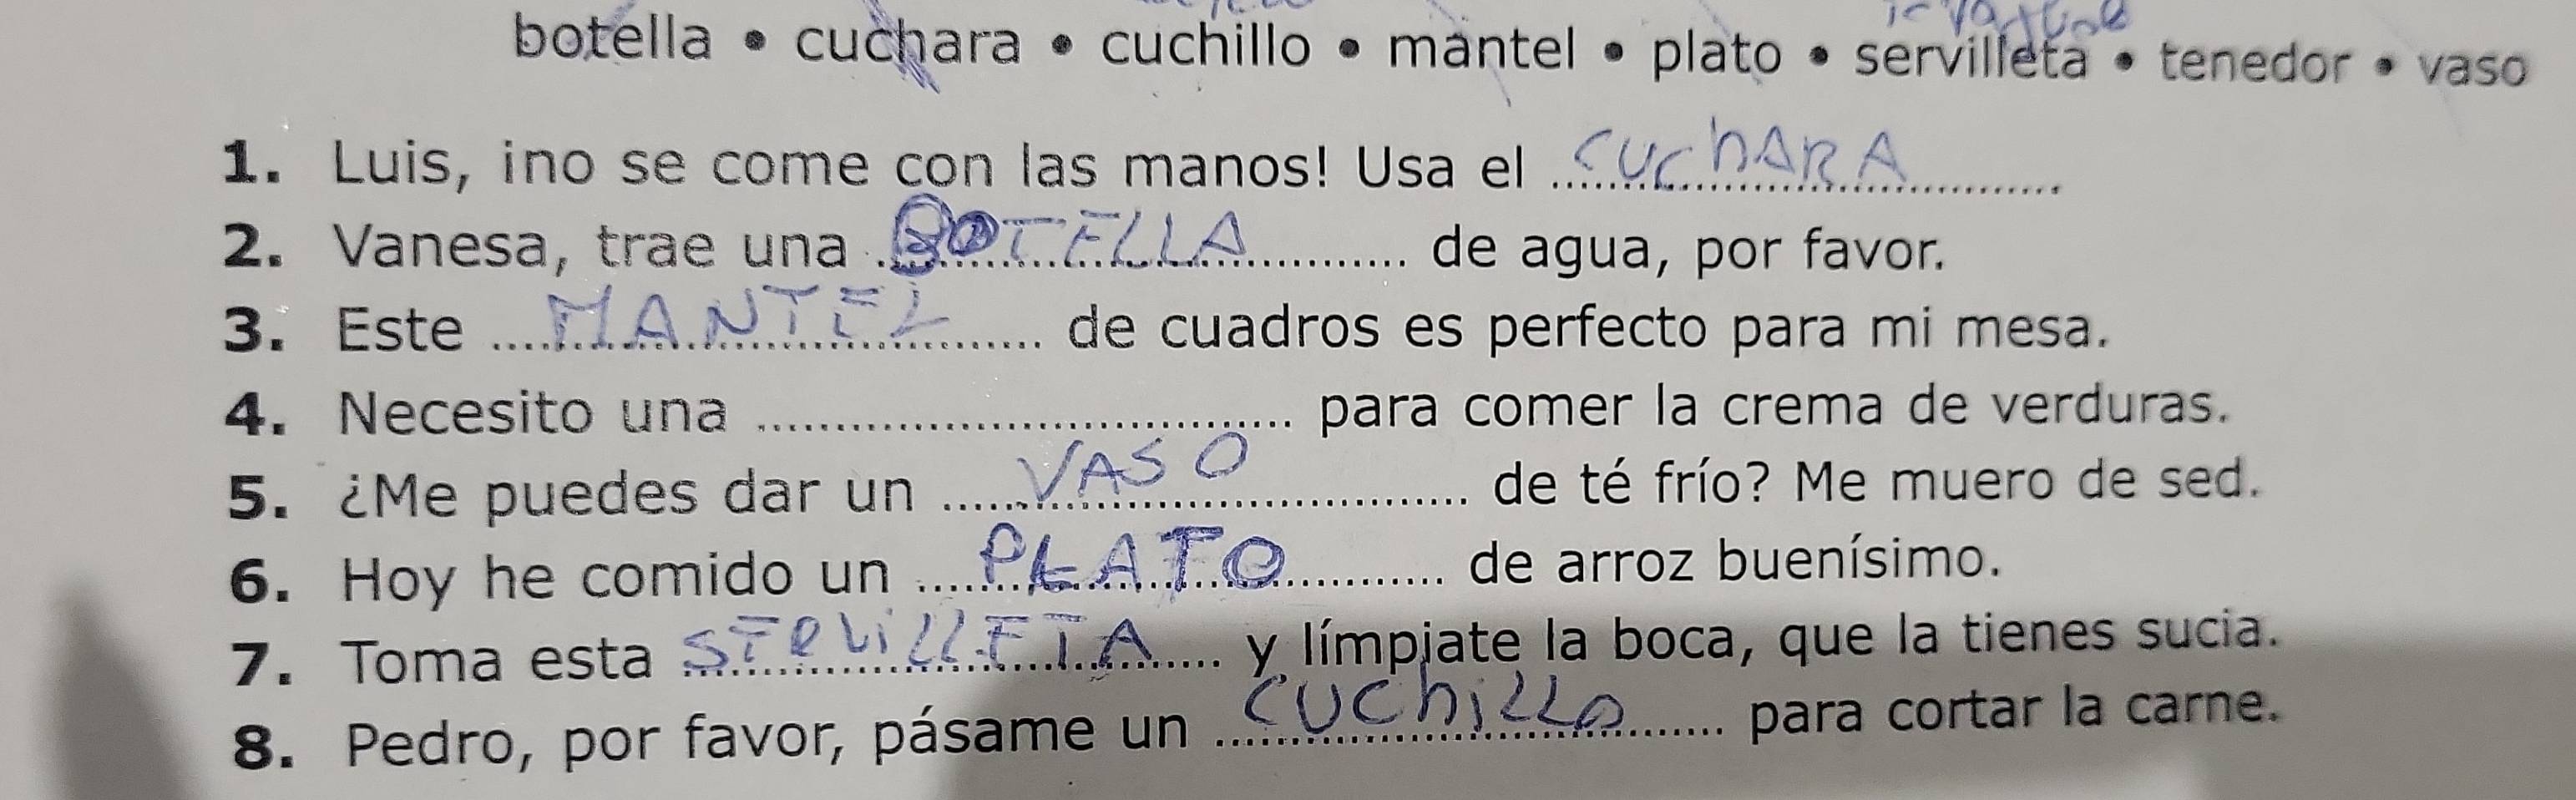 botella • cuchara • cuchillo • mantel • plato • servilleta • tenedor • vaso
1. Luis, ¡no se come con las manos! Usa el CUChARA
2. Vanesa, trae una BOTELLA de agua, por favor.
3. Este MANTEL de cuadros es perfecto para mi mesa.
4. Necesito una .......... para comer la crema de verduras.
5. ¿Me puedes dar un VASO de té frío? Me muero de sed.
6. Hoy he comido un PLATO de arroz buenísimo.
7. Toma esta SERViLLETA y límpiate la boca, que la tienes sucia.
8. Pedro, por favor, pásame un CUChiLLO para cortar la carne.